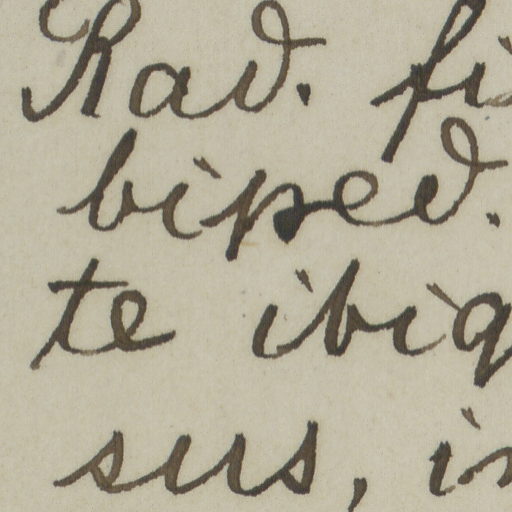 Rad. fi
biped.
te ibiq
sus, in